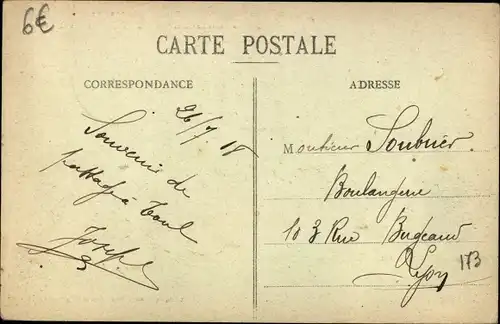 6€
CARTE POSTALE
CORRESPONDANCE
ADRESSE
26/7 18
Souvenir de
passage à Toul
Joseph
Monsieur Soubrier
Boulangerie
103 Rue Bugeaud
Lyon
173